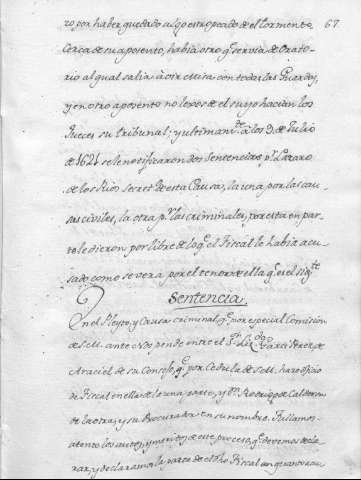 67
ro por haber quedado algo estropeado de el tormento
Cerca de su aposento, había otro q.e servia de Orato-
rio al qual salia à oir Missa con todas las Guardas,
y en otro aposento no lexos de el suyo hacian los
Jueces su tribunal; y ultimam.te à los 9. de Julio
de 1621 se le notificaron dos Sentencias p.r Lazaro
de los Rios Secret.o de esta Causa, la una por las cau-
sas civiles, la otra p.r las criminales, por esta en par-
te le dieron por libre de lo q.e el Fiscal le había acu-
sado como se vera por el tenor de ella q.e es el sig.te
Sentencia
En el Pleyto, y Causa criminal q.e por especial Comision
de S.M. ante Nos pende entre el S.r Liz.do Garci Perez de
Araciel de su Consejo, q.e por Cedula de S.M. hace oficio
de Fiscal en ella de la una parte, y D.n Rodrigo de Calderon
de la otra, y su Procurador en su nombre. Fallamos
atento los autos, y meritos de este proceso, q.e devemos decla-
rar, y declaramos la parte de el d.ho Fiscal en quanto acu